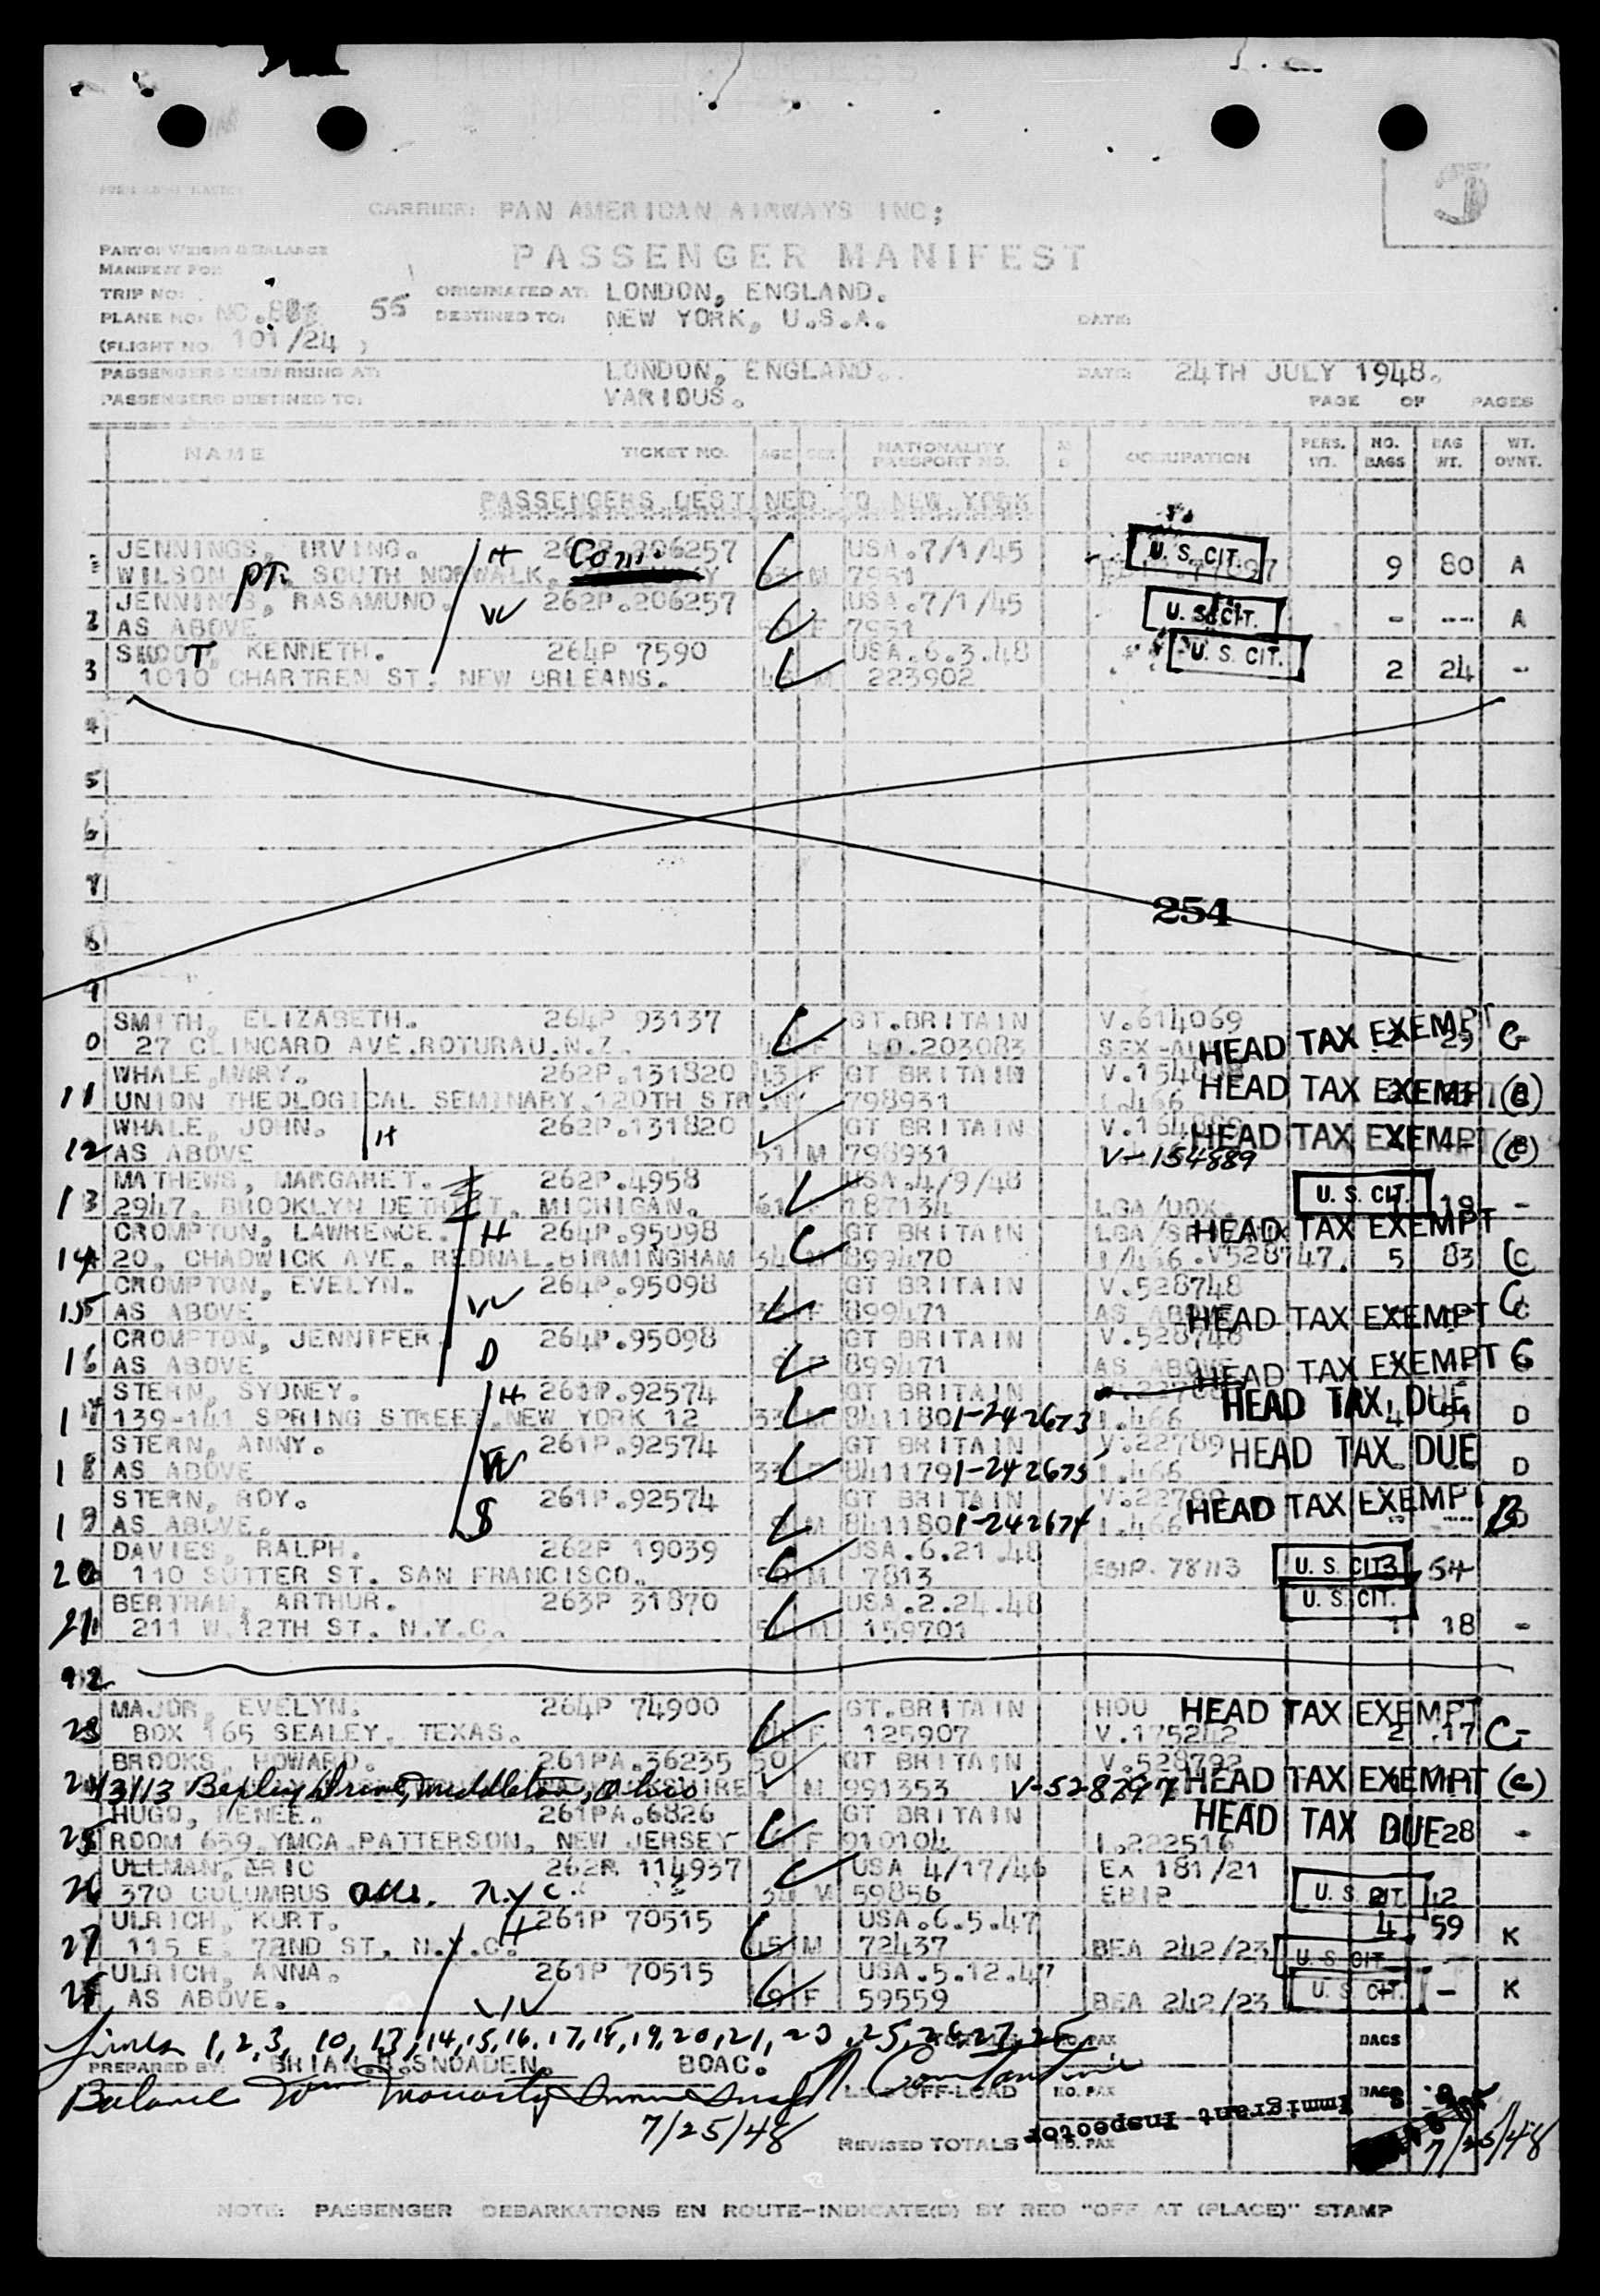 CARRIER: PAN AMERICAN AIRWAYS INC;
PART OF WEIGHT & BALANCE
MANIFEST FOR
PASSENGER MANIFEST
TRIP NO:
ORIGINATED AT: LONDON, ENGLAND.
PLANE NO. NC. 55
DESTINED TO: NEW YORK, U.S.A.
DATE:
(FLIGHT NO. 101/24 )
PASSENGERS EMBARKING AT: LONDON, ENGLAND. DATE: 24TH JULY 1948.
PASSENGERS DESTINED TO: VARIOUS. PAGE OF PAGES
NAME TICKET NO. AGE SEX NATIONALITY PASSPORT NO. OCCUPATION PERS. WT. NO. BAGS BAG WT. WT. OVNT.
PASSENGERS DESTINED TO NEW YORK
JENNINGS, IRVING. H 262P.206257 USA.7/1/45 U. S. CIT.
WILSON PT. SOUTH NORWALK, Conn. M 7931 9 80 A
JENNINGS, RASAMUND. W 262P.206257 USA.7/1/45 U. S. CIT.
2 AS ABOVE F 7931 - --- A
SHOOT, KENNETH. 264P 7590 USA.6.3.48 U. S. CIT.
3 1010 CHARTREN ST. NEW ORLEANS. M 223902 2 24 -
4
5
6
7
254
8
9
SMITH, ELIZABETH. 264P 93137 GT.BRITAIN V.614069
0 27 CLINCARD AVE.ROTURAU.N.Z. F LO.203083 HEAD TAX EXEMPT 29 C-
WHALE,MARY. 262P.131820 43 F GT BRITAIN
11 UNION THEOLOGICAL SEMINARY.120TH STR. 798931 1.466 HEAD TAX EXEMPT (C)
WHALE, JOHN. H 262P.131820 GT BRITAIN
12 AS ABOVE 51 M 798931 V-154889 HEAD TAX EXEMPT (C)
MATHEWS, MARGARET. 262P.4958 USA.4/9/48 U. S. CIT.
13 2947. BROOKLYN DETROIT, MICHIGAN. 61 F 187134 LGA/UOX. 18 -
CROMPTON, LAWRENCE. H 264P.95098 GT BRITAIN HEAD TAX EXEMPT
14 20, CHADWICK AVE. REDNAL.BIRMINGHAM 34 M 899470 1/466.V528747. 5 83 C
CROMPTON, EVELYN. W 264P.95098 GT BRITAIN V.528748
15 AS ABOVE 33 F 899471 AS ABOVE HEAD TAX EXEMPT C
CROMPTON, JENNIFER. D 264P.95098 GT BRITAIN V.528748
16 AS ABOVE 899471 AS ABOVE HEAD TAX EXEMPT C
STERN, SYDNEY. H 261P.92574 GT BRITAIN HEAD TAX DUE
17 139-141 SPRING STREET,NEW YORK 12 33 M 841180 1-242673 1.466 4 D
STERN, ANNY. W 261P.92574 GT BRITAIN V.22789 HEAD TAX DUE
18 AS ABOVE 33 F 841179 1-242675 1.466 D
STERN, ROY. S 261P.92574 GT BRITAIN HEAD TAX EXEMPT
19 AS ABOVE. M 841180 1-242674 1.466 B
DAVIES, RALPH. 262P 19039 USA.6.21.48
20 110 SUTTER ST. SAN FRANCISCO. M 7813 EBIP. 78113 U. S. CIT. 3 54
BERTRAM, ARTHUR. 263P 31870 USA.2.24.48 U. S. CIT.
21 211 W.12TH ST. N.Y.C. M 159701 1 18 -
MAJOR, EVELYN. 264P 74900 GT.BRITAIN HOU HEAD TAX EXEMPT
23 BOX 165 SEALEY, TEXAS. F 125907 V.175242 2 17 C-
BROOKS, HOWARD. 261PA.36235 50 GT BRITAIN V.528792
24 Drive, Middleton, Ohio M 991353 V-528797 HEAD TAX EXEMPT (C)
HUGO, RENEE. 261PA.6826 GT BRITAIN HEAD TAX DUE
25 ROOM 639.YMCA.PATTERSON, NEW JERSEY F 910104 1.222516 28 -
ULLMAN, ERIC 262P. 114937 USA 4/17/46 EX 181/21
26 370 COLUMBUS ave. N.Y.C. 34 M 59856 EBIP U. S. CIT. 12
ULRICH, KURT. H 261P 70515 USA.6.5.47 4 59 K
27 115 E. 72ND ST. N.Y.C. 45 M 72437 BEA 242/23 U. S. CIT.
ULRICH, ANNA. W 261P 70515 USA.5.12.47
28 AS ABOVE. F 59559 BEA 242/23 U. S. CIT. - K
Lines 1,2,3, 10, 13, 14,15,16,17,18,19,20,21,23,25,26,27,28 NO. PAX BAGS
PREPARED BY: BRIAN.R.SNOADEN. BOAC.
Balance OFF-LOAD NO. PAX BAGS
Immigrant Inspector
7/25/48 REVISED TOTALS NO. PAX 7/25/48
NOTE: PASSENGER DEBARKATIONS EN ROUTE-INDICATE(D) BY RED "OFF AT (PLACE)" STAMP